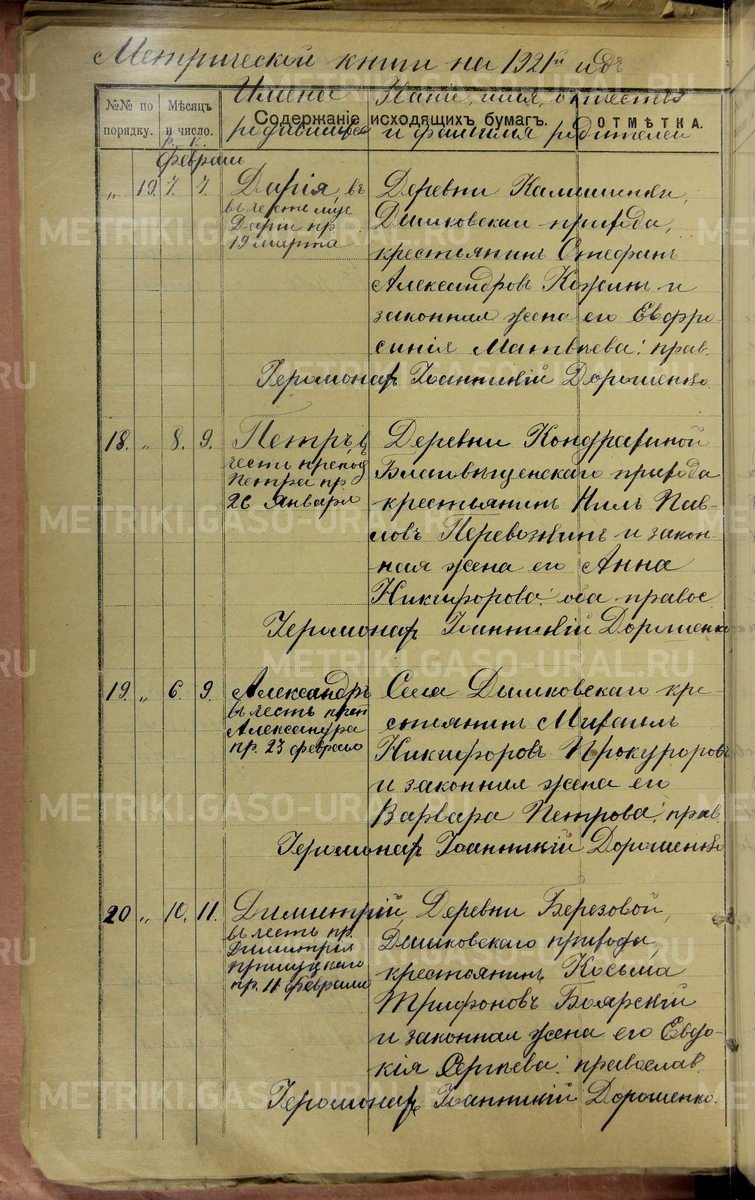 Метрической книги на 1921й годъ
№№ по порядку.
Мѣсяцъ и число.
Содержаніе исходящихъ бумагъ.
ОТМѢТКА.
Имена родившихся
имя, отчество и фамилия родителей
р. к.
февраль
„ 19. 7. 7.
Дарія, въ
въ честь муц
Дарии пр.
19 марта
Деревни Калишенки,
Дымковскаго прихода,
крестьянинъ Стефанъ
Александровъ Кожинъ и
законная жена его Евфро-
синія Матвѣева: прав.
Іеромонах Іоанникій Дорошенко
18. „ 8. 9.
Петръ, в
честь препод
Петра пр.
26 Января
Деревни Кондратиной
Благовѣщенскаго прихода
крестьянинъ Нилъ Пав-
ловъ Перевозкинъ и закон-
ная жена его Анна
Никифорова: оба правос
Іеромонах Іоанникій Дорошенко
19. „ 6. 9.
Александръ
въ честь преп
Александра
пр. 23 февраля
Села Дымковскаго кре-
стьянинъ Михаилъ
Никифоровъ Прокуроровъ
и законная жена его
Варвара Петрова: прав.
Іеромонах Іоанникій Дорошенко
20 „ 10. 11.
Димитрій,
въ честь пр.
Димитрія
Прилуцкаго
пр. 11 февраля
Деревни Березовой,
Дымковскаго прихода,
крестьянинъ Косьма
Трифоновъ Боярскій
и законная жена его Евдо-
кія Сергѣева: православ.
Іеромонах Іоанникій Дорошенко.
METRIKI.GASO-URAL.RU